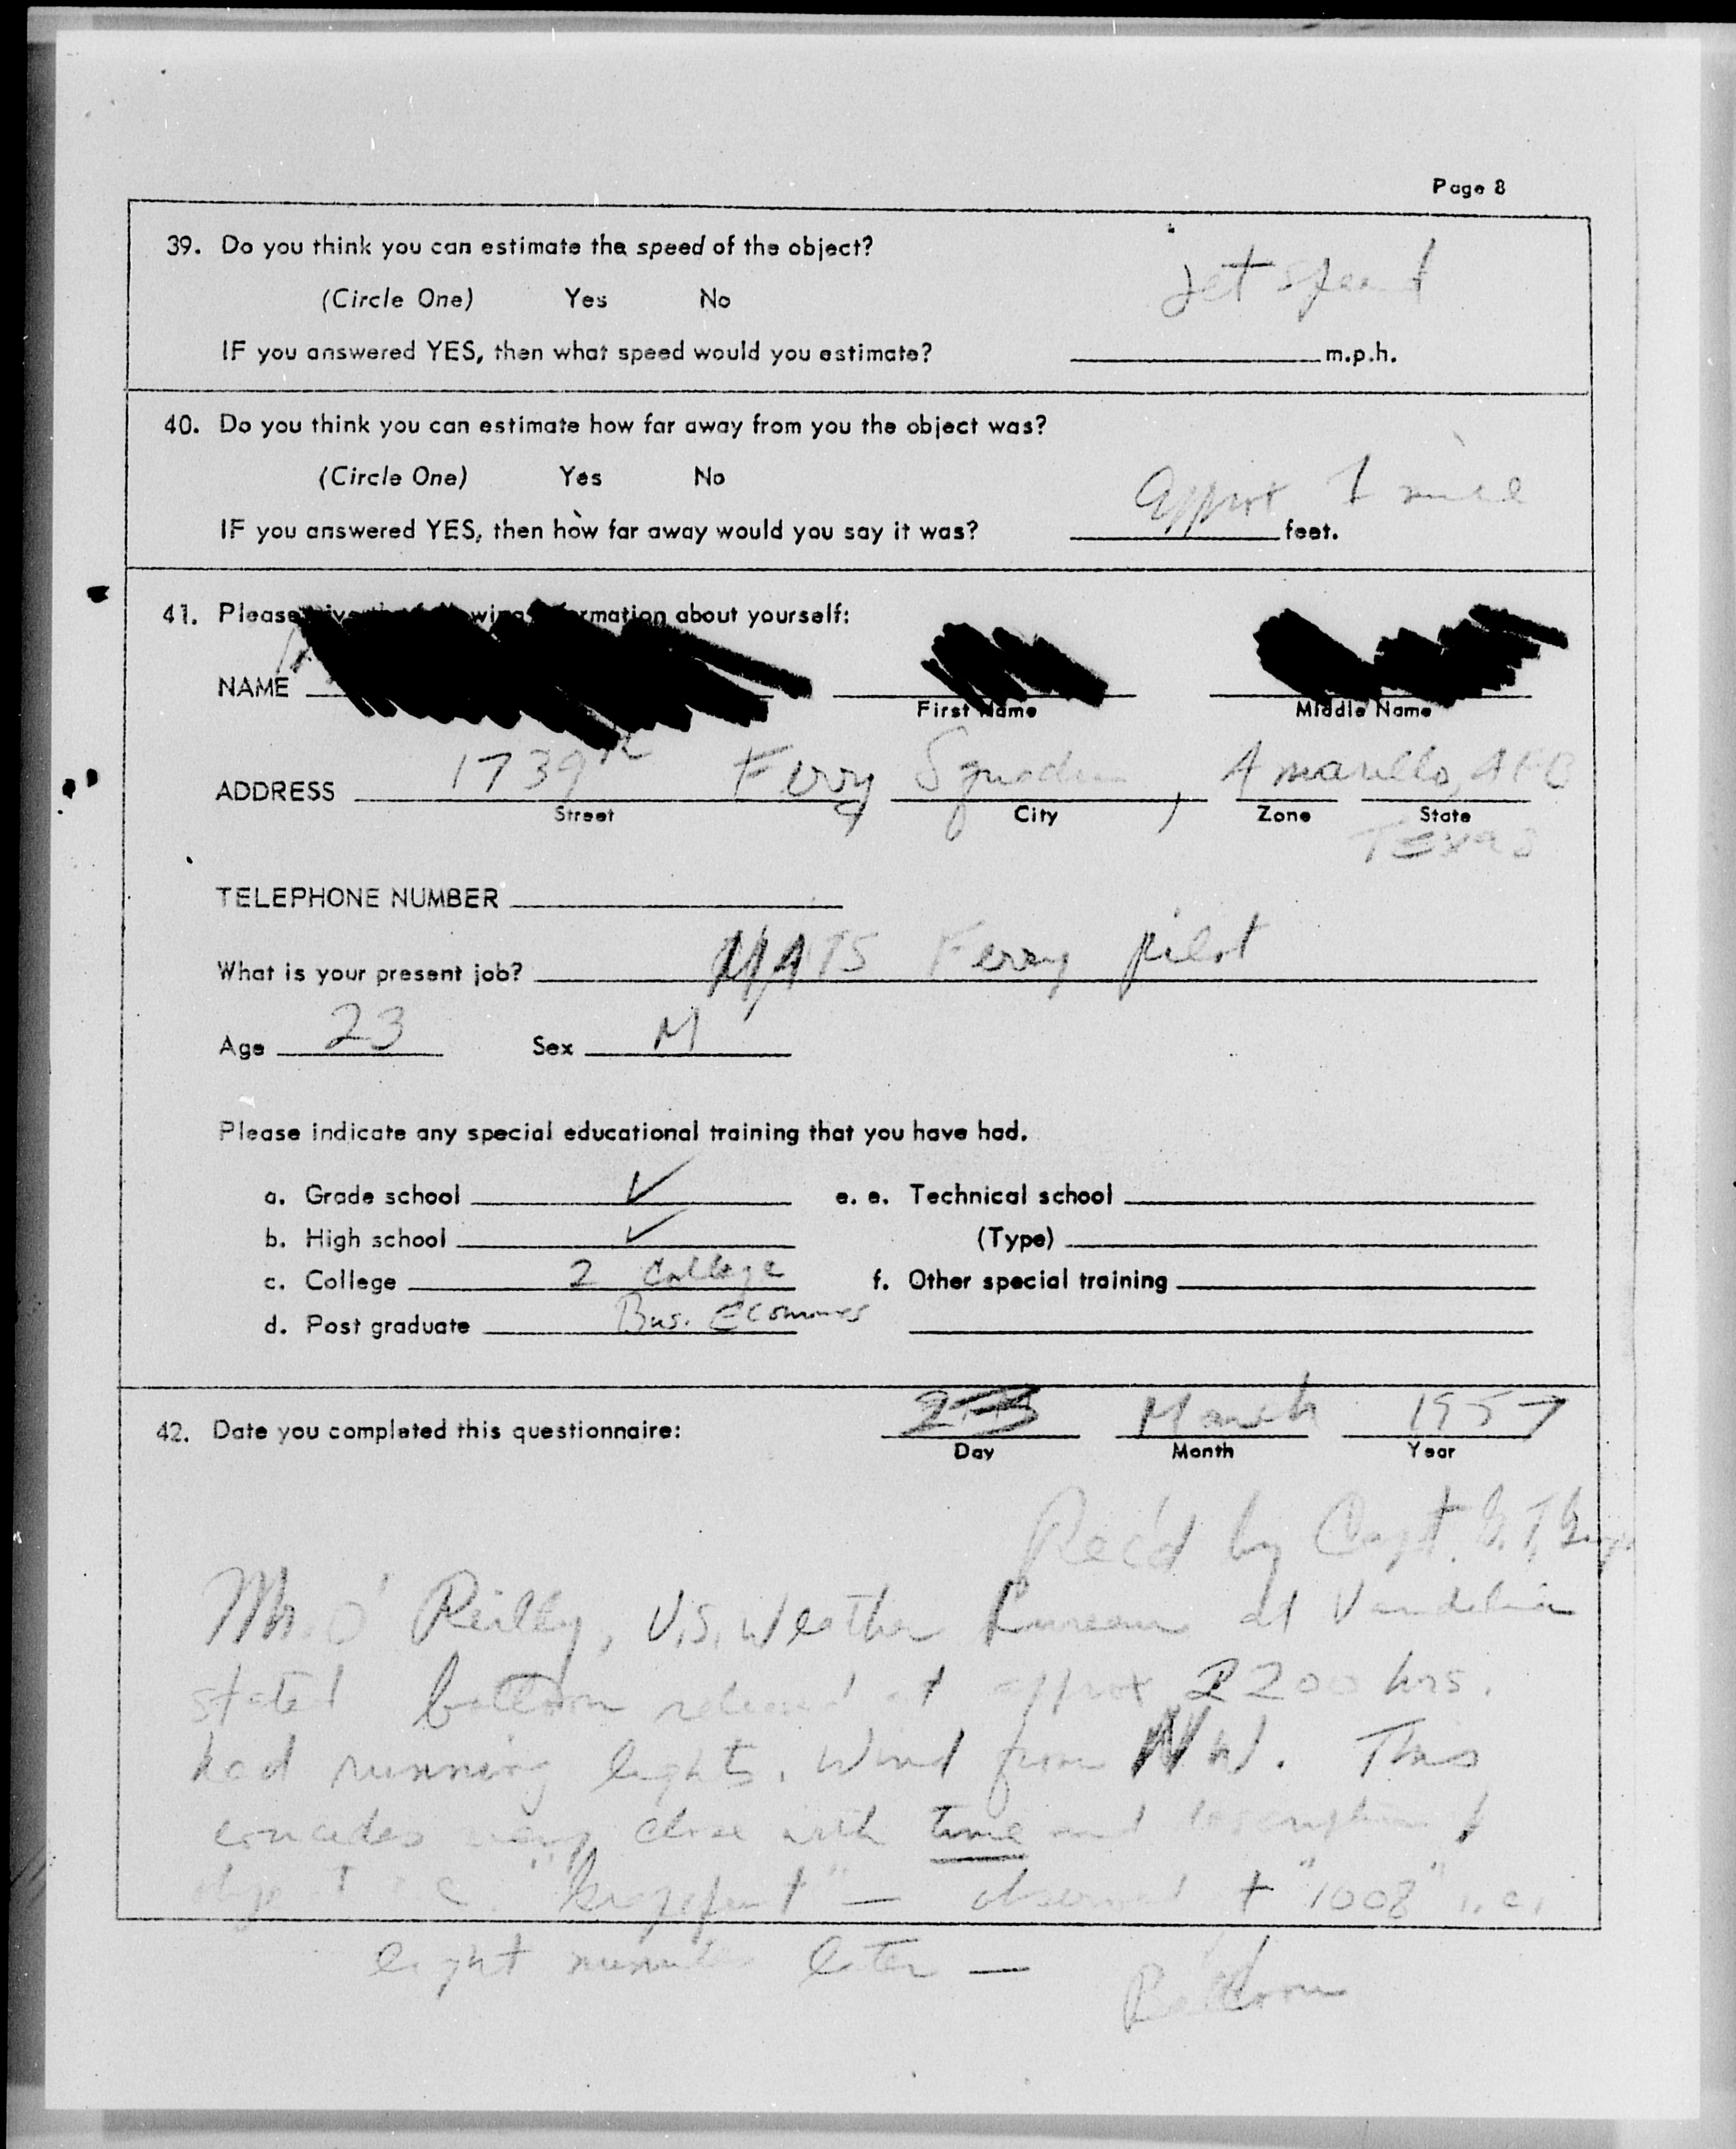 Page 8
39. Do you think you can estimate the speed of the object?
Jet speed
(Circle One) Yes No
IF you answered YES, then what speed would you estimate? m.p.h.
40. Do you think you can estimate how far away from you the object was?
(Circle One) Yes No
Approx 1 mile
IF you answered YES, then how far away would you say it was? feet.
41. Please about yourself:
NAME
First Name Middle Name
1739th Ferry Squadron, Amarillo, AFB
ADDRESS
Street City Zone State
Texas
TELEPHONE NUMBER
What is your present job? MATS Ferry pilot
Age 23 Sex M
Please indicate any special educational training that you have had.
a. Grade school ✓ e. e. Technical school
b. High school ✓ (Type)
c. College 2 College f. Other special training
d. Post graduate Bus. Economics
42. Date you completed this questionnaire: March 1957
Day Month Year
Rec'd by Capt. G. T.
Mr. O'Reilly, U.S. Weather Bureau at Vandalia
stated balloon released at approx 2200 hrs.
had running lights. Wind from NW. This
coincides very close with time and description of
object i.e. "grapefruit" — observed at "1008" i.e.
eight minutes later — Balloon